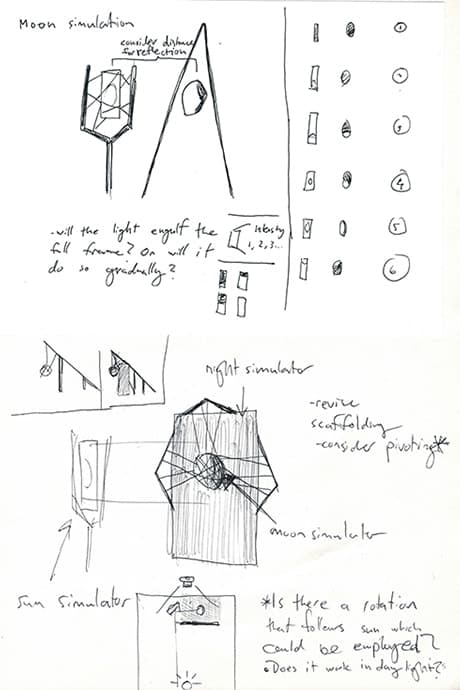 Moon simulation
consider distance
for reflection
1
2
3
4
5
6
- will the light engulf the
full frame? Or will it
do so gradually?
Intensity
1, 2, 3...
night simulator
- revise
scaffolding
- consider pivoting*
moon simulator
sun simulator
*Is there a rotation
that follows sun which
could be employed?
• Does it work in day light?